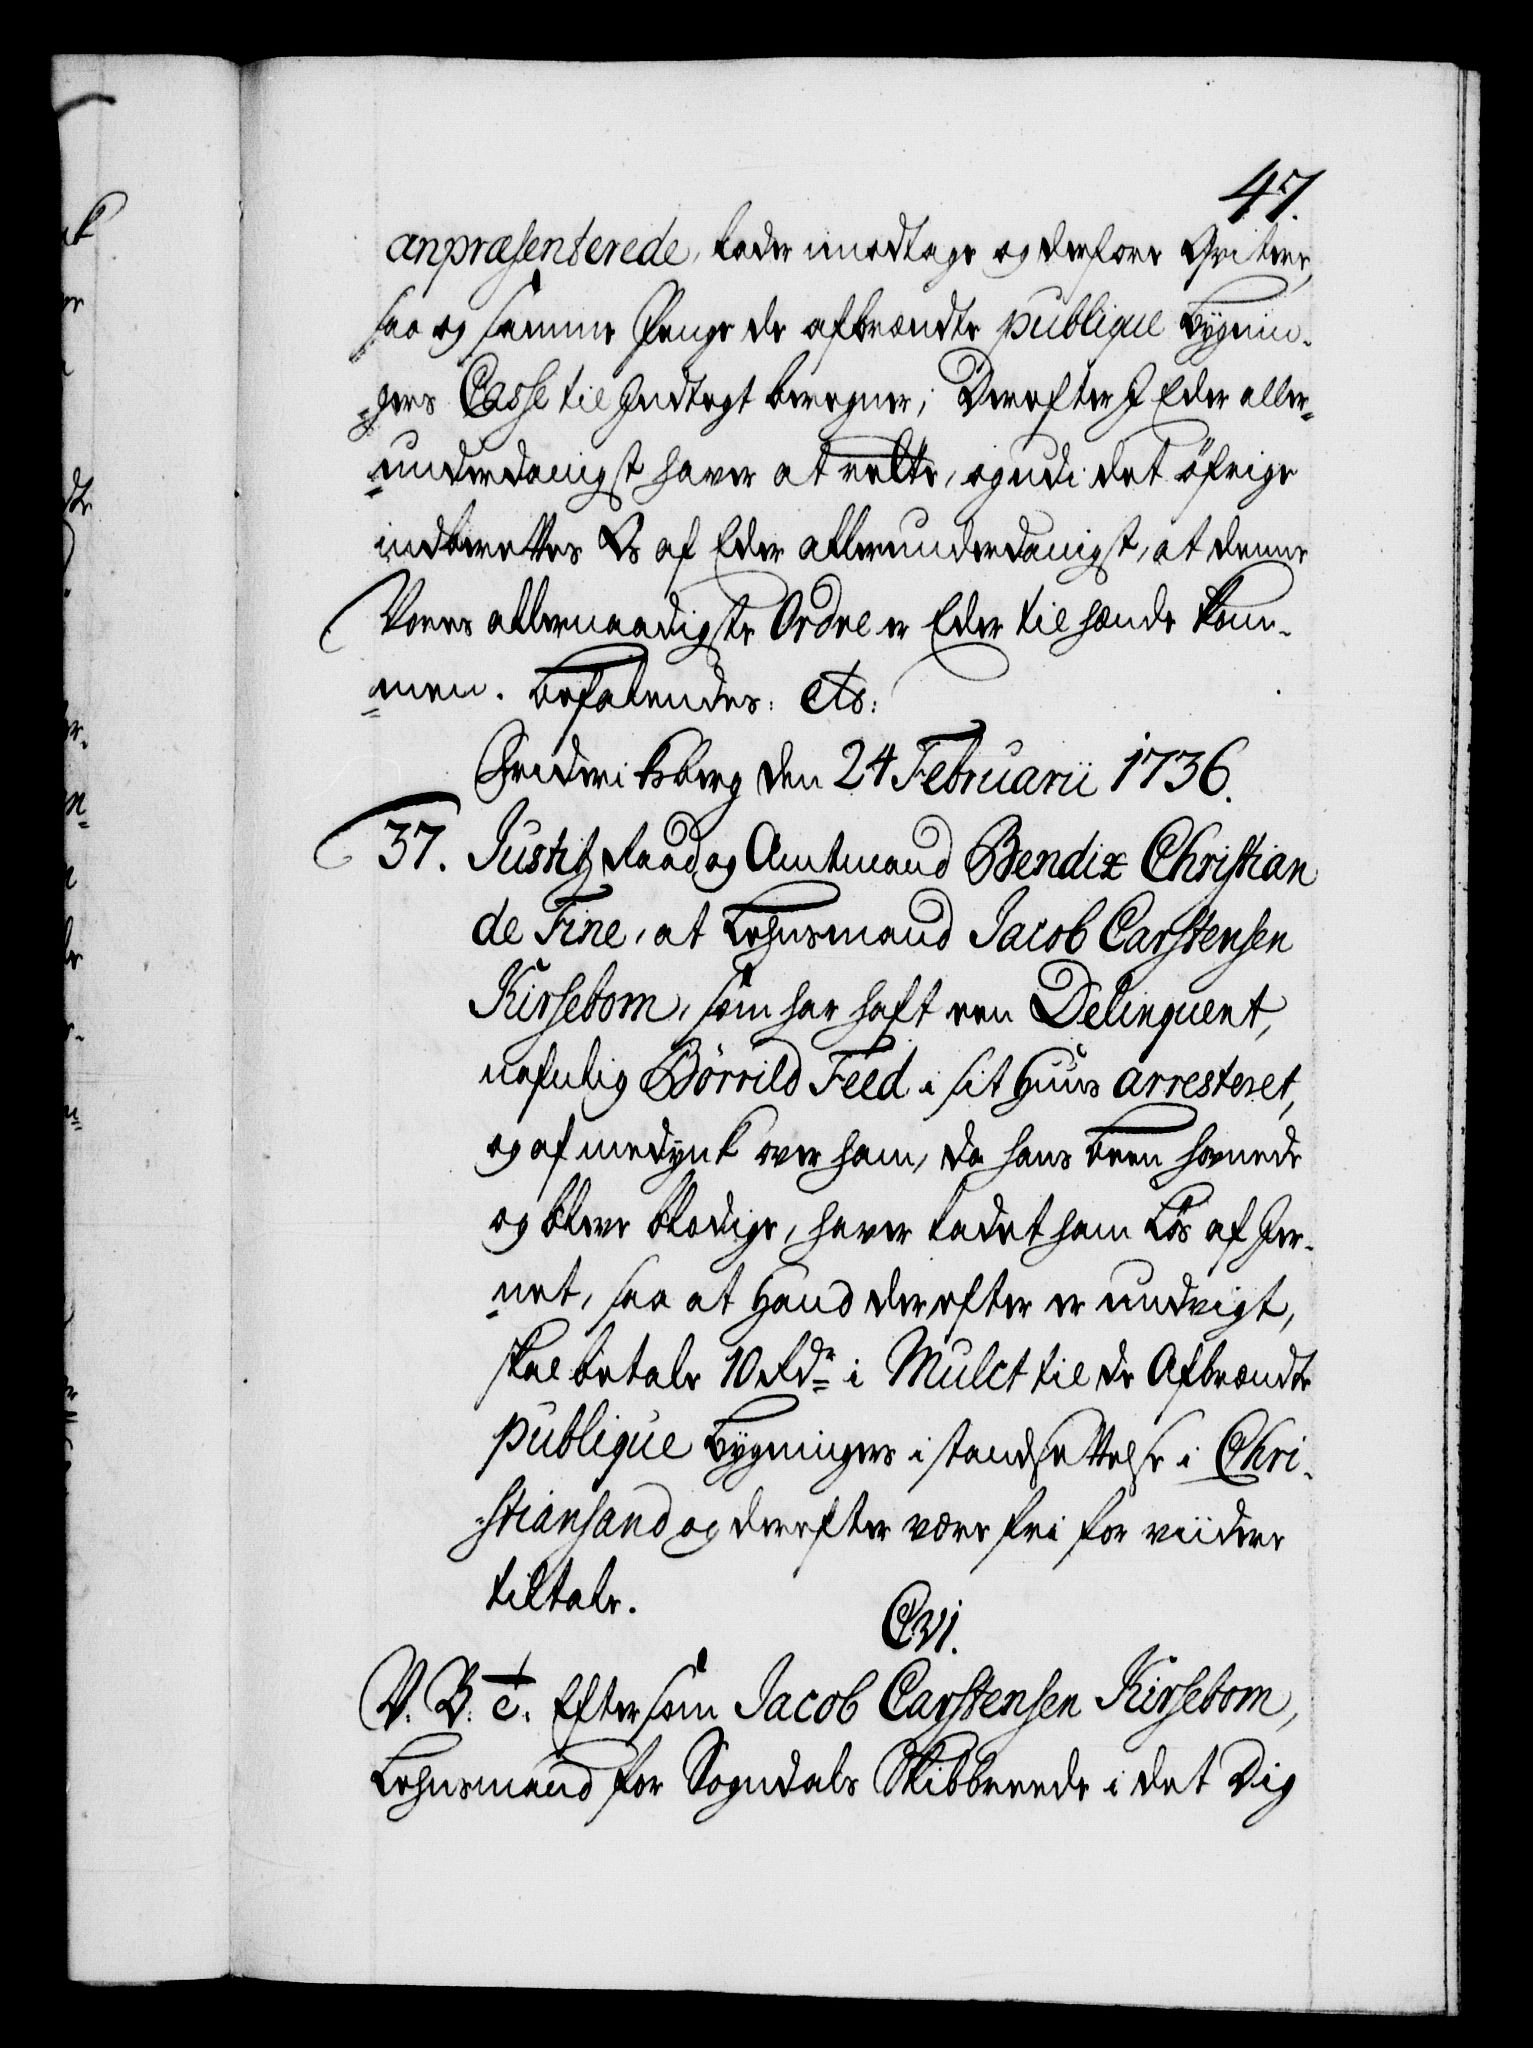 47.
anpræsenterede, lader imodtage og derfore Qvitere,
saa og samme Penge de afbrændte publique Bygnin-
gers Casse til Indtægt beregner; Derefter I Eder aller-
underdanigst haver at rette, og udi det öfrige
indberettes Os af Eder allerunderdanigst, at denne
Vores allernaadigste Ordre er Eder til hænde kom-
men. Befalendes: etc:
Frideriksberg den 24 Februarii 1736.
37. Justitz Raad og Amtmand Bendix Christian
de Fine, at Lehnsmand Jacob Carstensen
Kirsebom, som har haft een Delinquent,
nefnlig Börrild Feed i sit Huus arresteret,
og af medynk over ham, da hans been hovnede
og bleve blodige, haver ladet ham Lös af Jer-
net, saa at Hand derefter er undvigt,
skal betale 10 Rdr i Mulct til de Afbrændte
publique Bygningers istandsættelse i Chri-
stiansand og derefter være fri for viidere
tiltale.
C.VI.
V. B. t. Eftersom Jacob Carstensen Kirsebom,
Lehnsmand for Sogndals Skibbreede i det Dig